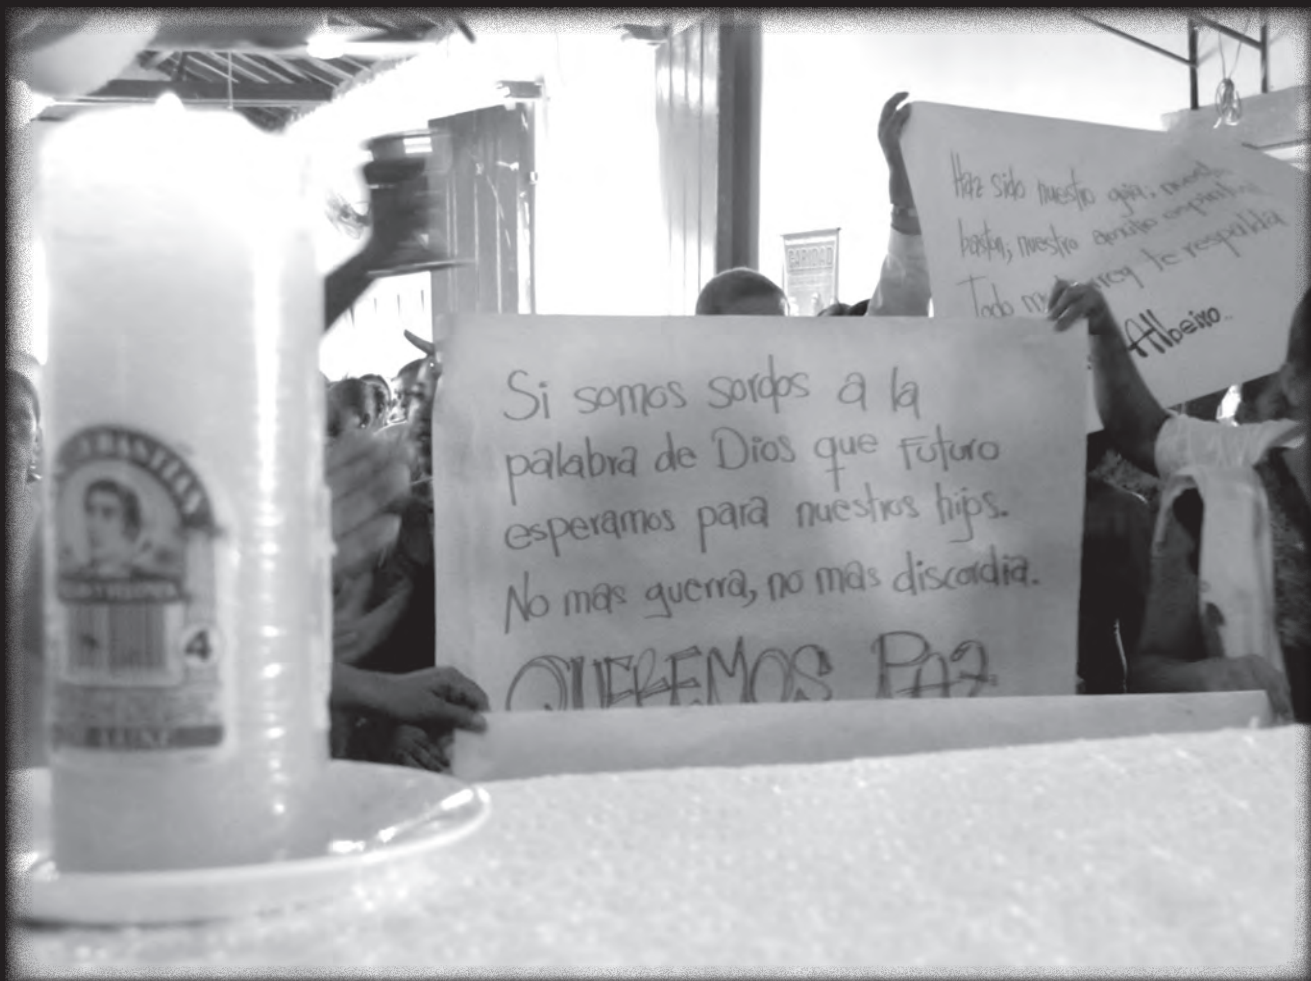 Haz sido nuestro guia, nuestro
baston, nuestro amigo espiritual
Todo te respalda
Albeiro..
CARIDAD
Si somos sordos a la
palabra de Dios que Futuro
esperamos para nuestros hijos.
No mas guerra, no mas discordia.
QUEREMOS PAZ
4